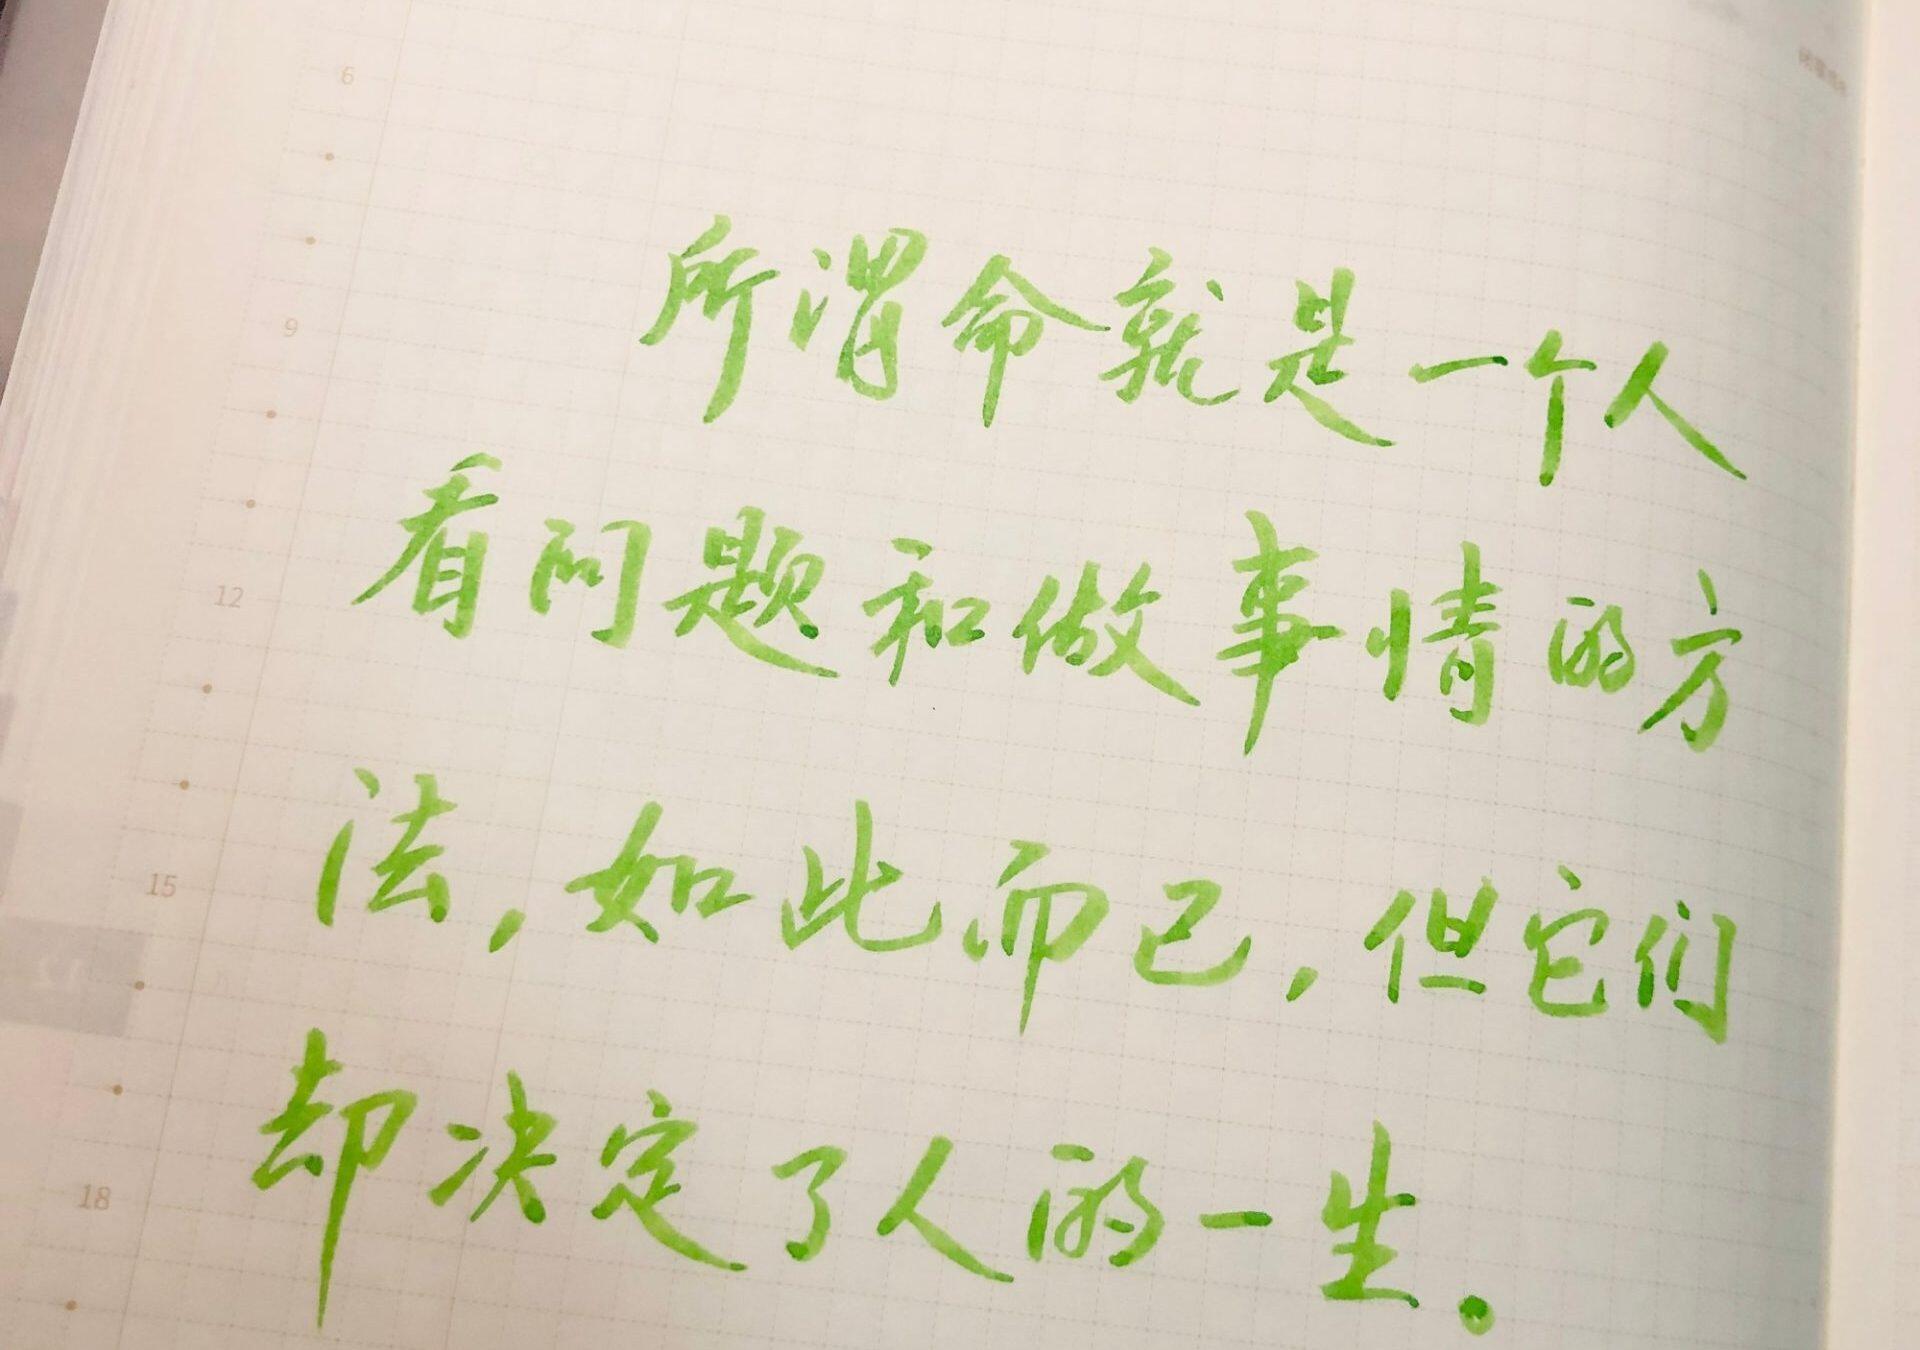 所谓命就是一个人
看问题和做事情的方
法,如此而已,但它们
却决定了人的一生.
6
9
12
15
18